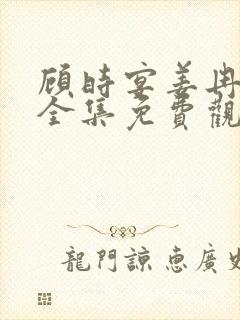 顾時宴姜冉
全集免費觀
龍門諒惠廣